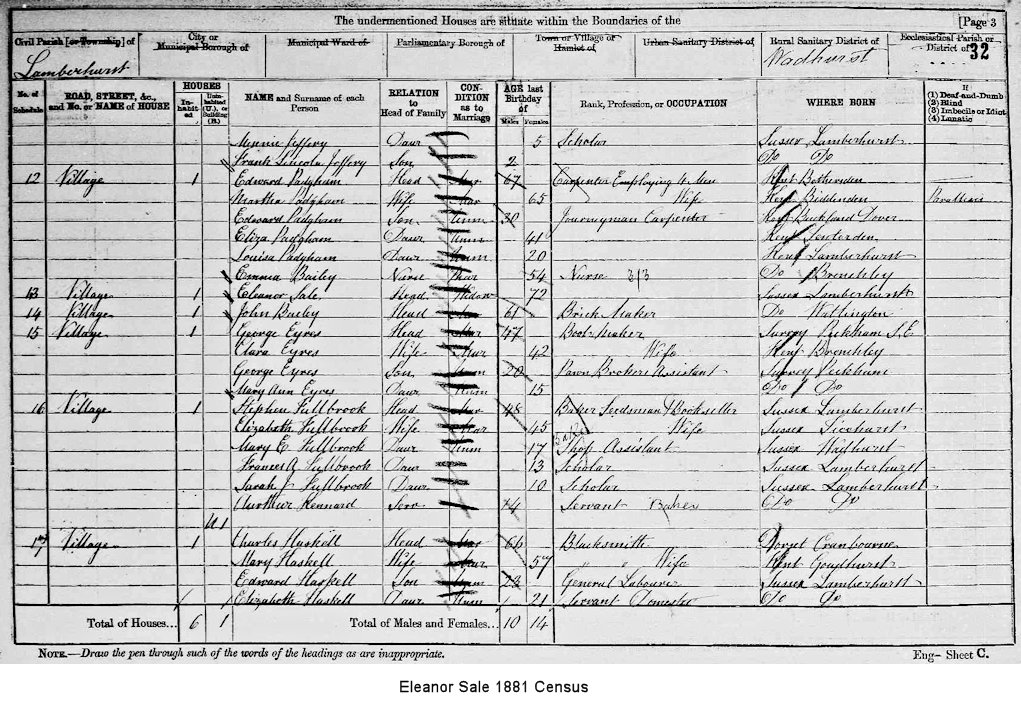 The undermentioned Houses are situate within the Boundaries of the [Page 3
Civil Parish [or Township] of City or Municipal Borough of Municipal Ward of Parliamentary Borough of Town or Village or Hamlet of Urban Sanitary District of Rural Sanitary District of Ecclesiastical Parish or District of
Lamberhurst Wadhurst 32
No. of Schedule ROAD, STREET, &c., and No. or NAME of HOUSE HOUSES Inhabited Uninhabited (U.), or Building (B.) NAME and Surname of each Person RELATION to Head of Family CONDITION as to Marriage AGE last Birthday of Males Females Rank, Profession, or OCCUPATION WHERE BORN If (1) Deaf-and-Dumb (2) Blind (3) Imbecile or Idiot (4) Lunatic
Minnie Jeffery Daur 5 Scholar Sussex Lamberhurst
Frank Lincoln Jeffery Son 2 Do Do
12 Village 1 Edward Padgham Head Mar 67 Carpenter Employing Men Kent Bethersden
Martha Padgham Wife Mar 65 Wife Kent Biddenden
Edward Padgham Son Unm 30 Journeyman Carpenter Kent Buckland Dover
Eliza Padgham Daur Unm 41 Kent Tenterden
Louisa Padgham Daur Unm 20 Kent Lamberhurst
Emma Bailey Nurse Mar 54 Nurse Do Brenchley
13 Village 1 Eleanor Sale Head Widow 72 Sussex Lamberhurst
14 Village 1 John Head 61 Brick Maker Do Watlington
15 Village 1 George Eyres Head Mar 47 Boot Maker Surrey Peckham S.E
Clara Eyres Wife Mar 42 Wife Kent Brenchley
George Eyres Son Unm 20 Pawn Brokers Assistant Surrey Peckham
Mary Ann Eyres Daur Unm 15 Do Do
16 Village 1 Stephen Fullbrook Head Mar 48 Baker Seedsman & Bookseller Sussex Lamberhurst
Elizabeth Fullbrook Wife Mar 45 Wife Sussex Ticehurst
Mary E Fullbrook Daur Unm 17 Shop Assistant Sussex Wadhurst
Frances A Fullbrook Daur 13 Scholar Sussex Lamberhurst
Sarah J Fullbrook Daur 10 Scholar Sussex Lamberhurst
Aurthur Kennard Serv Servant Baker Do Do
U 1
17 Village 1 Charles Haskell Head Mar 66 Blacksmith Dorset Cranbourne
Mary Haskell Wife Mar 57 Wife Kent Goudhurst
Edward Haskell Son Unm 23 General Labourer Sussex Lamberhurst
Elizabeth Haskell Daur Unm 21 Servant Domestic Do Do
Total of Houses... 6 1 Total of Males and Females... 10 14
NOTE.—Draw the pen through such of the words of the headings as are inappropriate. Eng- Sheet C.
Eleanor Sale 1881 Census